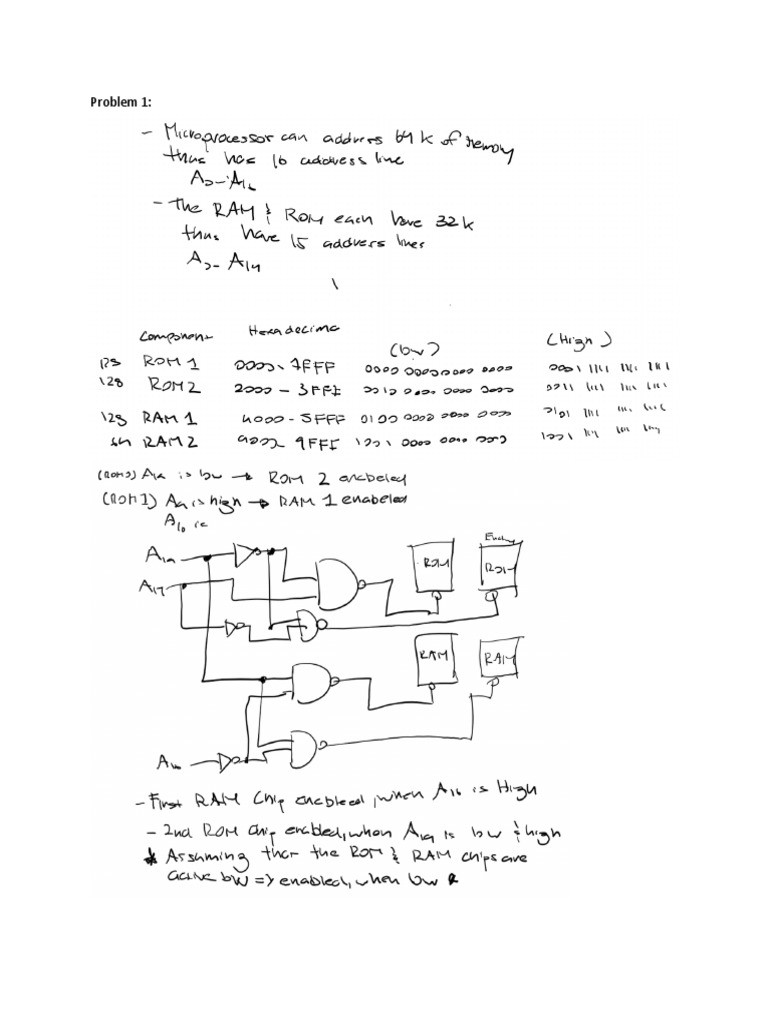 Problem 1:
- Microprocessor can address 64 K of memory
thus has 16 address line
- The RAM & ROM each have 32 K
thus have 15 address lines
A₀- A₁₄
Component Hexadecima (low) (High)
128 ROM 1 0000- 1FFF 0000 0000 0000 0000 0001 1111 1111 1111
128 ROM 2 2000 - 3FFF 0010 0000 0000 0000 0011 1111 1111 1111
128 RAM 1 4000 - 5FFF 0100 0000 0000 0000 0101 1111 1111 1111
RAM 2 9FFF 1001 0000 0000 0000 1001 1111 1111 1111
is low → ROM 2 enabeled
(ROM 1) is high → RAM 1 enabeled
ROM
ROM
RAM
RAM
- First RAM Chip enabeled, when A₁₆ is High
- 2nd ROM chip enabled, when is low & high
* Assuming that the ROM & RAM chips are
active low => enabled, when low